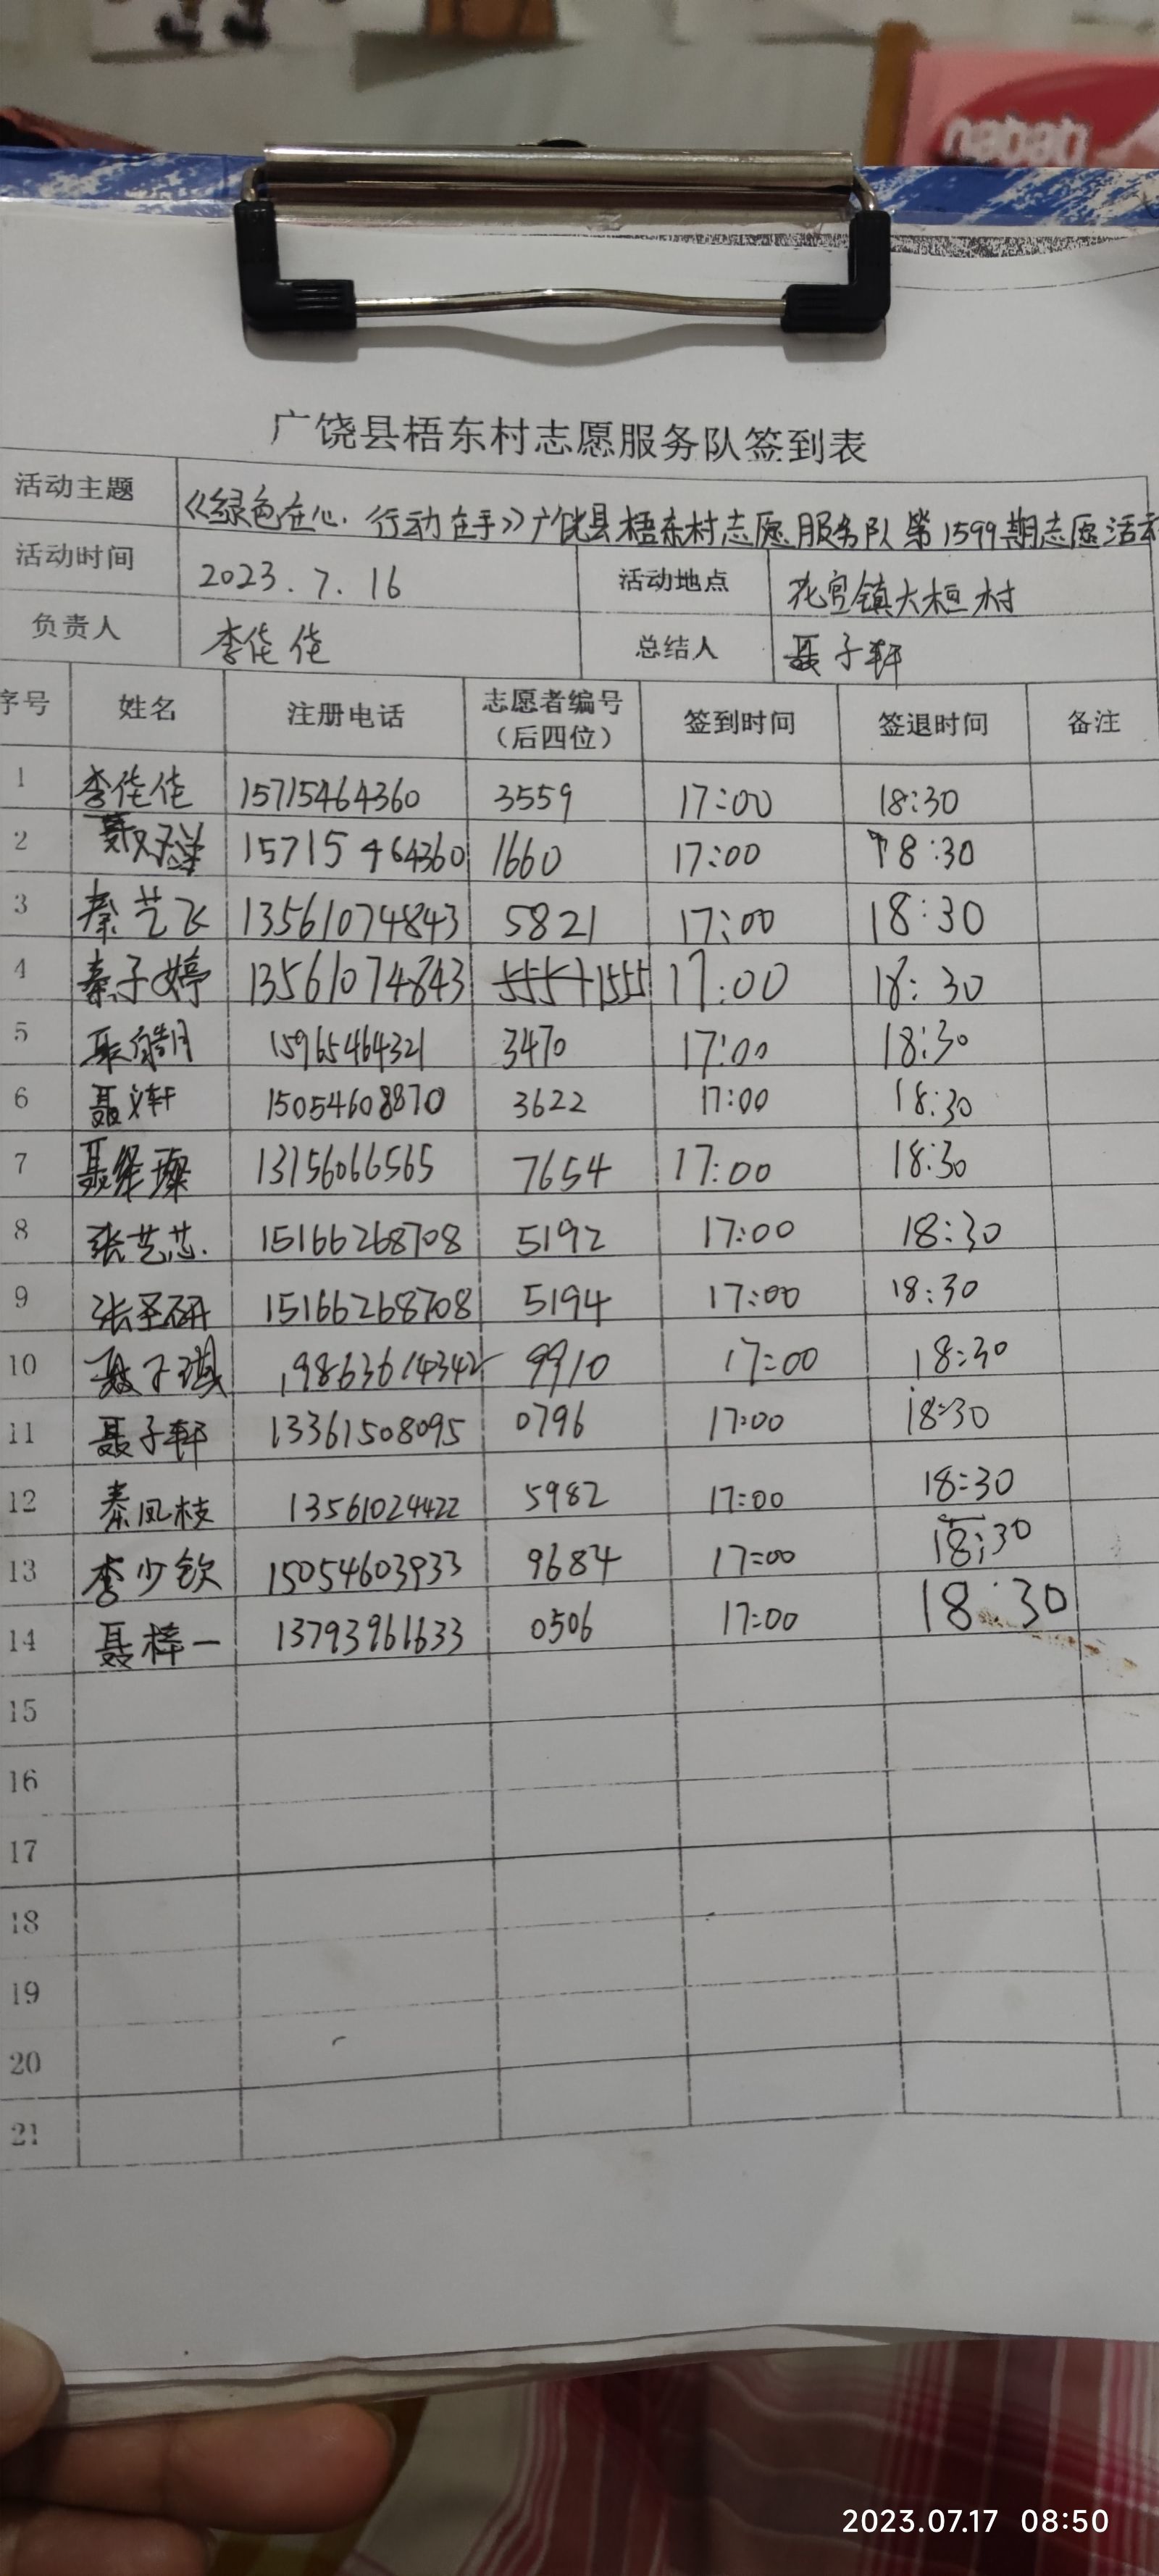 nabati
广饶县梧东村志愿服务队签到表
活动主题 《绿色在心、行动在手》广饶县梧东村志愿服务队第1599期志愿活动
活动时间 2023.7.16 活动地点 花官镇大桓村
负责人 李佳佳 总结人 聂子轩
序号 姓名 注册电话 志愿者编号（后四位） 签到时间 签退时间 备注
1 李佳佳 15715464360 3559 17:00 18:30
2 15715464360 1660 17:00 18:30
3 秦艺飞 13561074843 5821 17:00 18:30
4 秦子婷 13561074843 1555 17:00 18:30
5 15965464321 3470 17:00 18:30
6 15054608870 3622 17:00 18:30
7 13156066565 7654 17:00 18:30
8 张艺芯 15166268708 5192 17:00 18:30
9 张圣研 15166268708 5194 17:00 18:30
10 聂子琪 19863614342 9910 17:00 18:30
11 聂子轩 13361508095 0796 17:00 18:30
12 秦凤枝 13561024422 5982 17:00 18:30
13 李少钦 15054603933 9684 17:00 18:30
14 聂梓一 13793961633 0506 17:00 18:30
15
16
17
18
19
20
21
2023.07.17 08:50